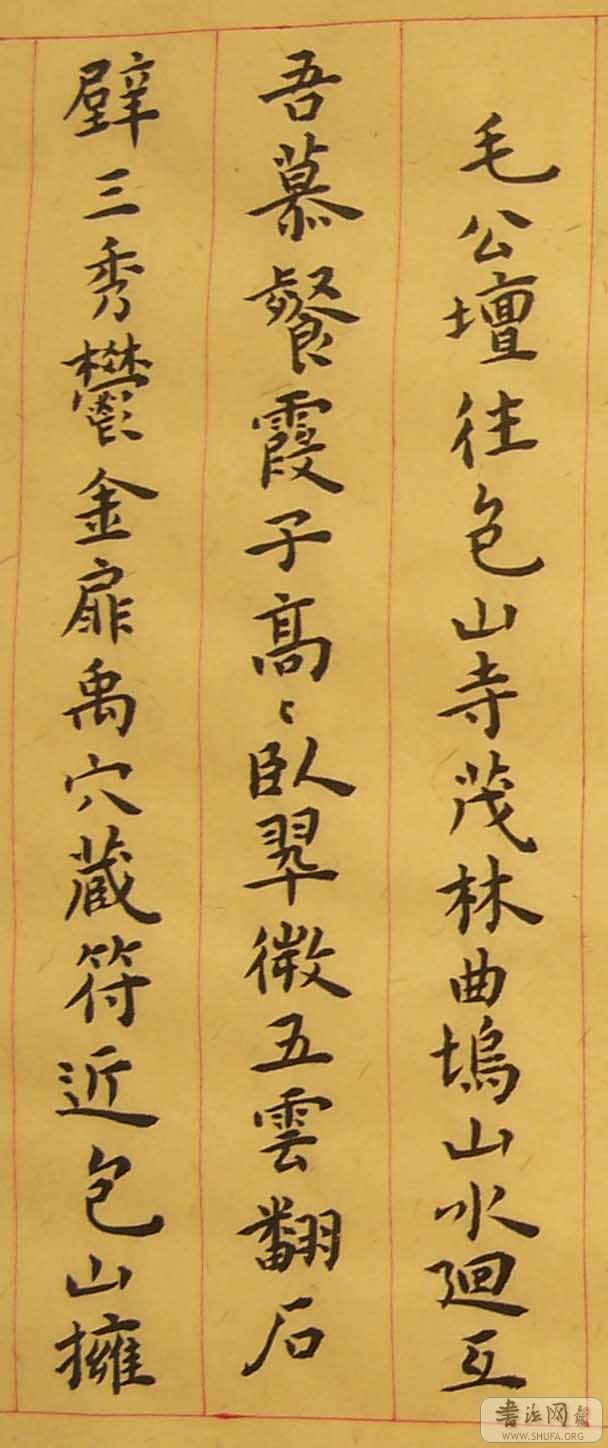 毛公壇往包山寺茂林曲塢山水迴互
吾慕餐霞子高〻臥翠微五雲翻石
壁三秀鬱金扉禹穴藏符近包山擁
書法网
WWW.SHUFA.ORG